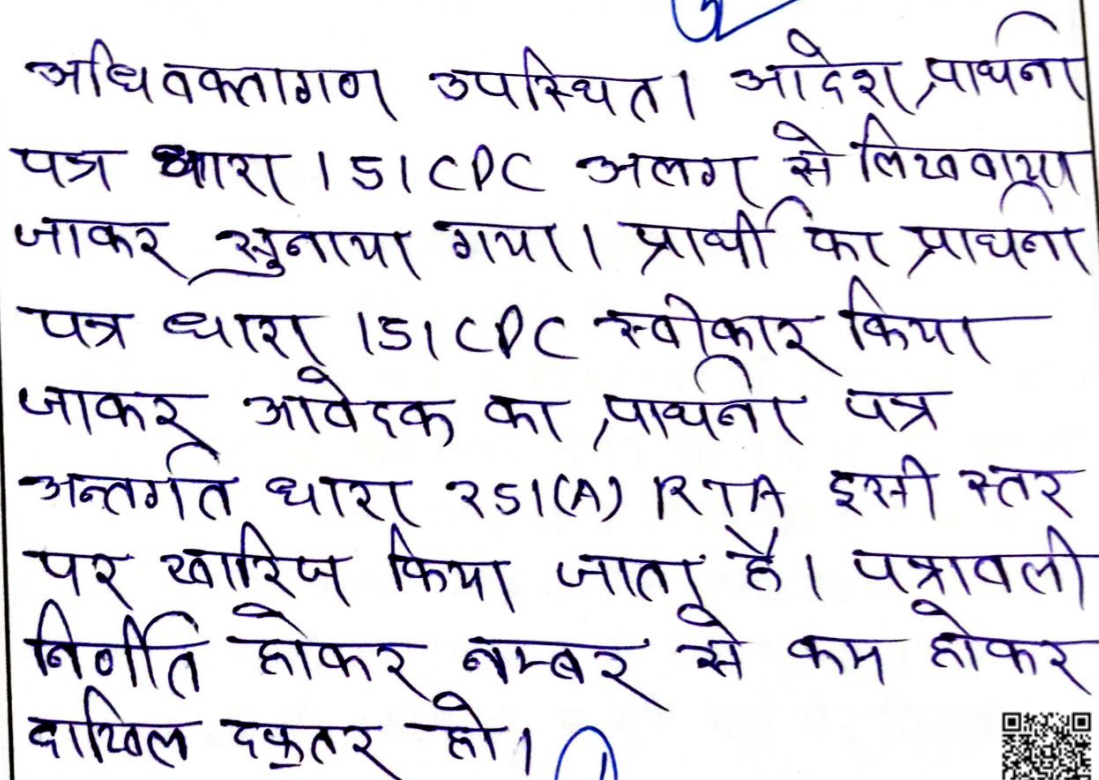 अधिवक्तागण उपस्थित। आदेश प्रार्थना
पत्र धारा 151 CPC अलग से लिखवाया
जाकर सुनाया गया। प्रार्थी का प्रार्थना
पत्र धारा 151 CPC स्वीकार किया
जाकर आवेदक का प्रार्थना पत्र
अन्तर्गत धारा 251(A) RTA इसी स्तर
पर खारिज किया जाता है। पत्रावली
निर्णीत होकर नम्बर से कम होकर
दाखिल दफ्तर हो।